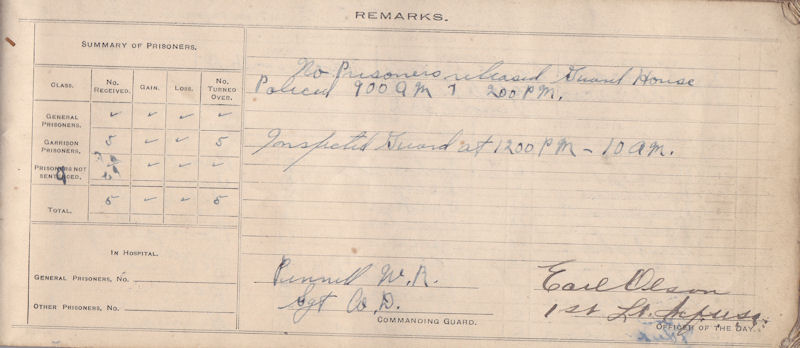 REMARKS.
SUMMARY OF PRISONERS.
CLASS. NO. RECEIVED. GAIN. LOSS. NO. TURNED OVER.
GENERAL PRISONERS. ✓ ✓ ✓ ✓
GARRISON PRISONERS. 5 ✓ ✓ 5
PRISONERS NOT SENTENCED. ✓ ✓ ✓
TOTAL. 5 ✓ ✓ 5
IN HOSPITAL.
GENERAL PRISONERS, NO.
OTHER PRISONERS, NO.
No Prisoners released Guard House
Policed 900 AM 200 PM.
Inspected Guard at 1200 PM - 10 AM.
Pennell W. R.
Sgt Co. D.
COMMANDING GUARD.
Earl Olson
1st Lt.
OFFICER OF THE DAY.